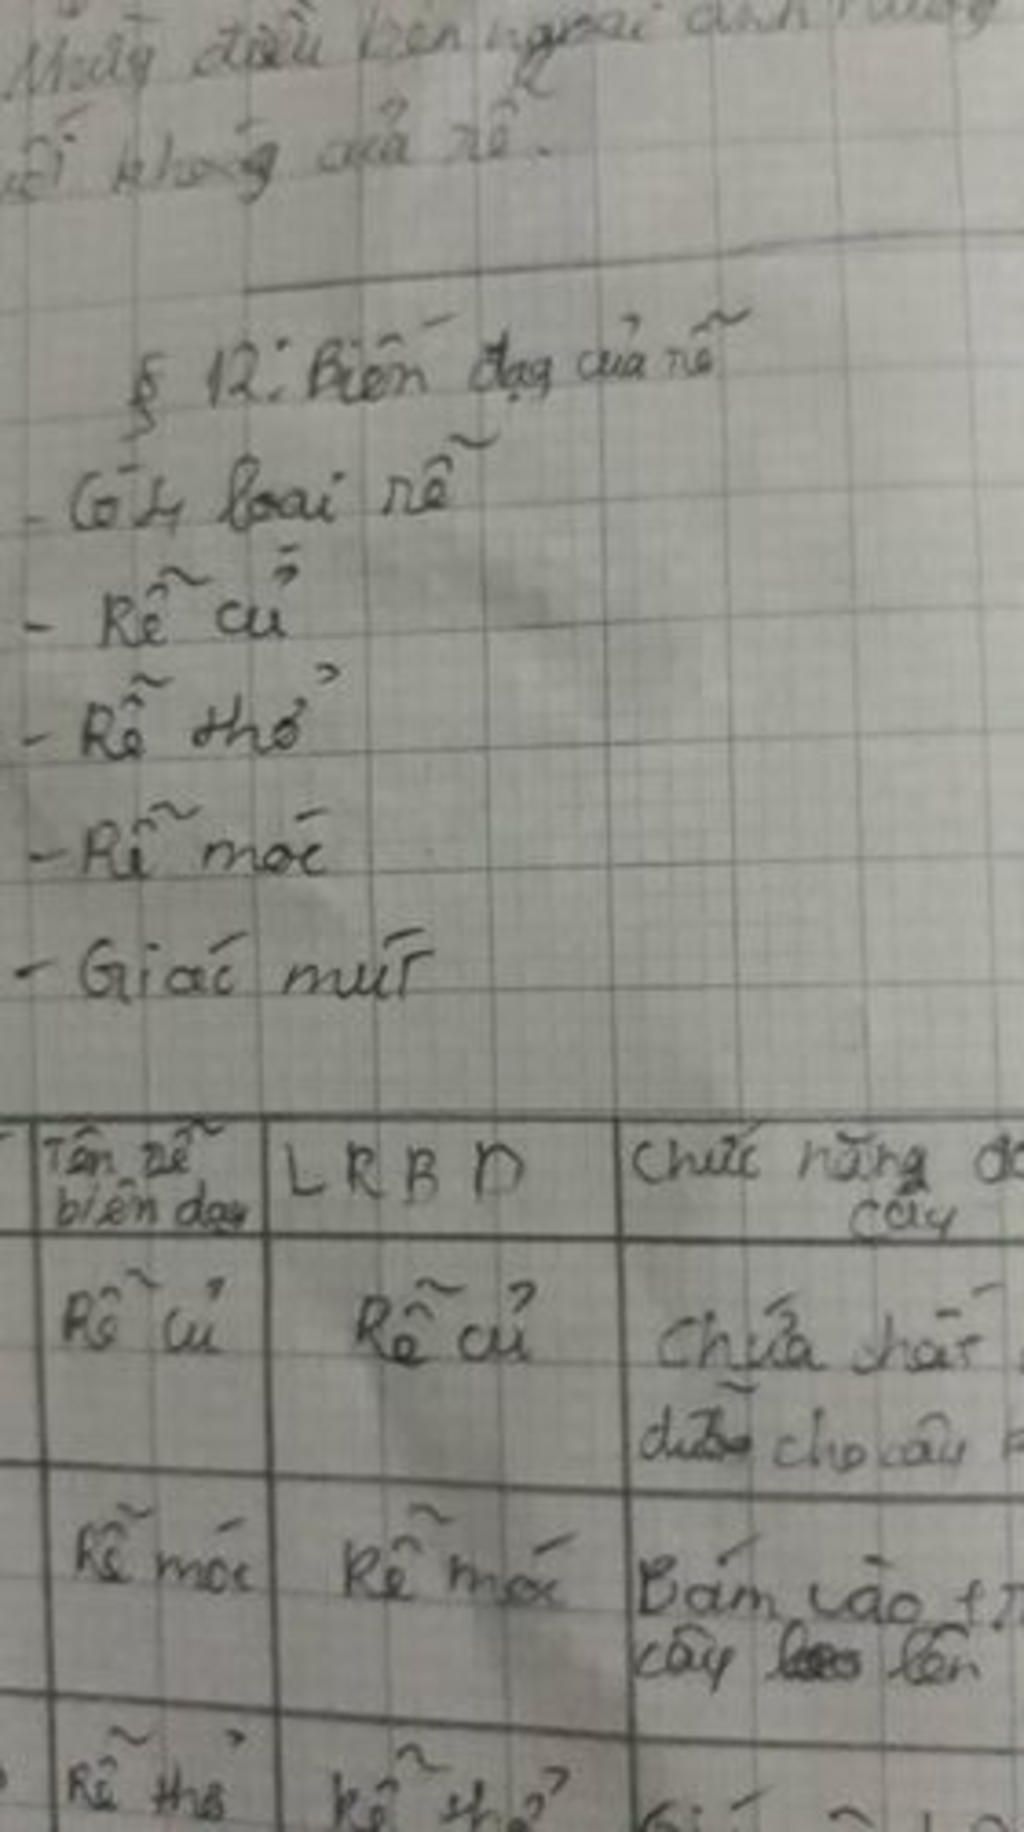 điều bên ngoài ảnh
không của rễ.
§ 12: Biến dạng của rễ
- Có 4 loại rễ
- Rễ củ
- Rễ thở
- Rễ móc
- Giác mút
Tên rễ biến dạng LRBD Chức năng cây
Rễ củ Rễ củ Chứa chất
cho cây
Rễ móc Rễ móc Bám vào
cây leo lên
Rễ thở Rễ thở